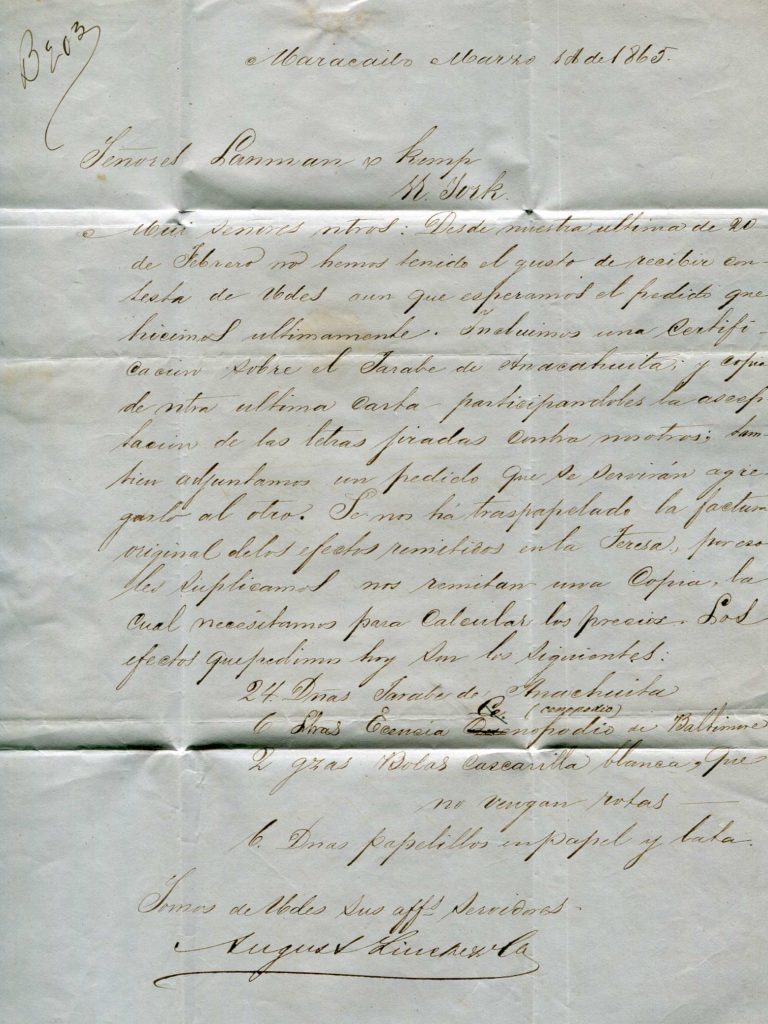 Maracaibo Marzo de 1865.
Señores Lanman & Kemp
N. York.
Mui señores ntros: Desde nuestra ultima de 20
de Febrero no hemos tenido el gusto de recibir con-
testa de Udes aun que esperamos el pedido que
hicimos ultimamente. Incluimos una certifi-
cacion sobre el Jarabe de Anacahuita; y copia
de ntra ultima carta participandoles la acep
tacion de las letras jiradas contra nosotros; tam-
bien adjuntamos un pedido que se servirán agre-
garlo al otro. Se nos há traspapelado la factura
original delos efectos remitidos en la Teresa, por eso
les suplicamos nos remitan una Copia, la
cual necésitamos para calcular los precios. Los
efectos que pedimos hoy son los siguientes:
24. Dnas Jarabe de Anachuita
(cenopodio)
6 Lbras Ecencia Ce.nopodio de Baltimore
2 gzas Bolas cascarilla blanca, que
no vengan rotas —
6. Dnas papelillos en papel y lata.
Somos de Udes sus affs servidores.
August